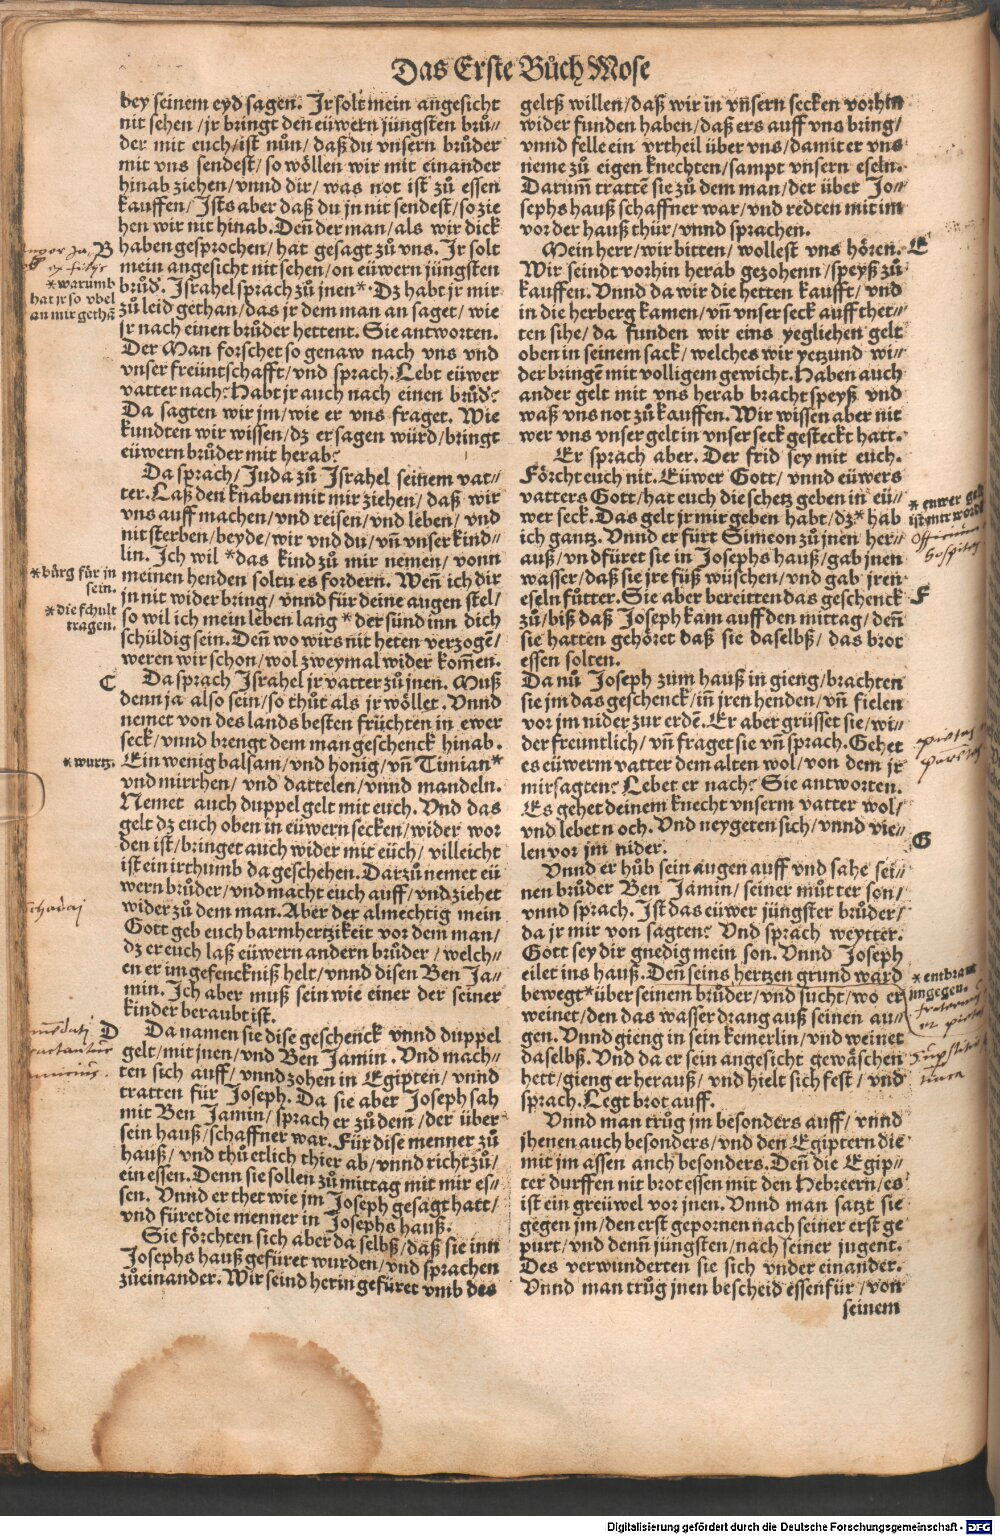 Das Erste Bůch Mose
bey seinem eyd sagen. Jr solt mein angesicht
nit sehen/jr bringt den eüwern jüngsten brů⸗
der mit euch/ist nůn/daß du vnsern brůder
mit vns sendest/so wöllen wir mit einander
hinab ziehen/vnnd dir/was not ist zů essen
kauffen/Ists aber daß du jn nit sendest/so zie
hen wir nit hinab. Deñ der man/als wir dick
B
haben gesprochen/hat gesagt zů vns. Jr solt
mein angesicht nit sehen/on eüwern jüngsten
*warumb
hat jr so vbel
an mir gethã
brůd. Israhel sprach zů jnen*. Dz habt jr mir
zů leid gethan/das jr dem man an saget/wie
jr nach einen brůder hettent. Sie antworten.
Der Man forschet so genaw nach vns vnd
vnser freüntschafft/vnd sprach. Lebt eüwer
vatter nach? Habt jr auch nach einen brůd?
Da sagten wir jm/wie er vns fraget. Wie
kundten wir wissen/dz er sagen würd/bringt
eüwern brůder mit herab?
Da sprach/Juda zů Israhel seinem vat⸗
ter. Laß den knaben mit mir ziehen/daß wir
vns auff machen/vnd reisen/vnd leben/vnd
nit sterben/beyde/wir vnd du/vñ vnser kind⸗
lin. Ich wil *das kind zů mir nemen/vonn
*bürg für jn
sein.
meinen henden soltu es fordern. Weñ ich dir
jn nit wider bring/vnnd für deine augen stel/
*die schult
tragen.
so wil ich mein leben lang *der sünd inn dich
schüldig sein. Deñ wo wirs nit heten verzogē/
weren wir schon/wol zweymal wider kom̃en.
C
Da sprach Israhel jr vatter zů jnen. Muß
denn ja also sein/so thůt als jr wöllet. Vnnd
nemet von des lands besten früchten in ewer
seck/vnnd brengt dem man geschenck hinab.
*wurtz.
Ein wenig balsam/vnd honig/vñ Timian*
vnd mirrhen/vnd dattelen/vnnd mandeln.
Nemet auch duppel gelt mit euch. Vnd das
gelt dz euch oben in eüwern secken/wider wor
den ist/bringet auch wider mit eüch/villeicht
ist ein irthumb da geschehen. Darzů nemet eü
wern brůder/vnd macht euch auff/vnd ziehet
wider zů dem man. Aber der almechtig mein
Gott geb euch barmhertzikeit vor dem man/
dz er euch laß eüwern andern brůder/welch⸗
en er im gefenckniß helt/vnnd disen Ben Ja⸗
min. Ich aber muß sein wie einer der seiner
kinder beraubt ist.
D
Da namen sie dise geschenck vnnd duppel
gelt/mit jnen/vnd Ben Jamin. Vnd mach⸗
ten sich auff/vnnd zohen in Egipten/vnnd
tratten für Joseph. Da sie aber Joseph sah
mit Ben Jamin/sprach er zů dem/der über
sein hauß/schaffner war. Für dise menner zů
hauß/vnd thů etlich thier ab/vnnd richt zů/
ein essen. Denn sie sollen zů mittag mit mir es⸗
sen. Vnnd er thet wie jm Joseph gesagt hatt/
vnd füret die menner in Josephs hauß.
Sie förchten sich aber da selbß/daß sie inn
Josephs hauß gefüret wurden/vnd sprachen
zůeinander. Wir seind herin gefüret vmb des
geltß willen/daß wir in vnsern secken vorhin
wider funden haben/daß ers auff vns bring/
vnnd felle ein vrtheil über vns/damit er vns
neme zů eigen knechten/sampt vnsern eseln.
Darum̃ trattē sie zů dem man/der über Jo⸗
sephs hauß schaffner war/vnd redten mit im
vor der hauß thür/vnnd sprachen.
E
Mein herr/wir bitten/wollest vns hören.
Wir seindt vorhin herab gezohenn/speyß zů
kauffen. Vnnd da wir die hetten kaufft/vnd
in die herberg kamen/vñ vnser seck auff thet⸗
ten sihe/da funden wir eins yegliehen gelt
oben in seinem sack/welches wir yetzund wi⸗
der bringē mit volligem gewicht. Haben auch
ander gelt mit vns herab bracht speyß vnd
waß vns not zů kauffen. Wir wissen aber nit
wer vns vnser gelt in vnser seck gesteckt hatt.
Er sprach aber. Der frid sey mit euch.
Förcht euch nit. Eüwer Gott/vnnd eüwers
vatters Gott/hat euch die schetz geben in eü⸗
* euwer gelt
ist mir word
wer seck. Das gelt jr mir geben habt/dz* hab
ich gantz. Vnnd er fürt Simeon zů jnen her⸗
auß/vnd füret sie in Josephs hauß/gab jnen
wasser/daß sie jre füß wüschen/vnd gab jren
F
eseln fůtter. Sie aber bereitten das geschenck
zů/biß daß Joseph kam auff den mittag/deñ
sie hatten gehöret daß sie daselbß/das brot
essen solten.
Da nů Joseph zum hauß in gieng/brachten
sie jm das geschenck/iñ jren henden/vñ fielen
vor jm nider zur erdē. Er aber grüsset sie/wi⸗
der freuntlich/vñ fraget sie vñ sprach. Gehet
es eüwerm vatter dem alten wol/von dem jr
mir sagten? Lebet er nach? Sie antworten.
Es gehet deinem knecht vnserm vatter wol/
G
vnd lebet n och. Vnd neygeten sich/vnnd vie⸗
len vor jm nider.
Vnnd er hůb sein augen auff vnd sahe sei⸗
nen brůder Ben Jamin/seiner můtter son/
vnnd sprach. Ist das eüwer jüngster brůder/
da jr mir von sagten? Vnd sprach weytter.
Gott sey dir gnedig mein son. Vnnd Joseph
eilet ins hauß. Deñ seins hertzen grund ward
* entbrant
jm gegen.
bewegt*über seinem brůder/vnd sucht/wo er
weinet/den das wasser drang auß seinen au⸗
gen. Vnnd gieng in sein kemerlin/vnd weinet
daselbß. Vnd da er sein angesicht gewäschen
hett/gieng er herauß/vnd hielt sich fest/vnd
sprach. Legt brot auff.
Vnnd man trůg jm besonders auff/vnnd
jhenen auch besonders/vnd den Egiptern die
mit jm assen anch besonders. Deñ die Egip⸗
ter durffen nit brot essen mit den Hebreern/es
ist ein greüwel vor jnen. Vnnd man satzt sie
gegen jm/den erst gepornen nach seiner erst ge
purt/vnd denn jüngsten/nach seiner jugent.
Des verwunderten sie sich vnder einander.
Vnnd man trůg jnen bescheid essen für/von
seinem
Digitalisierung gefördert durch die Deutsche Forschungsgemeinschaft - DFG